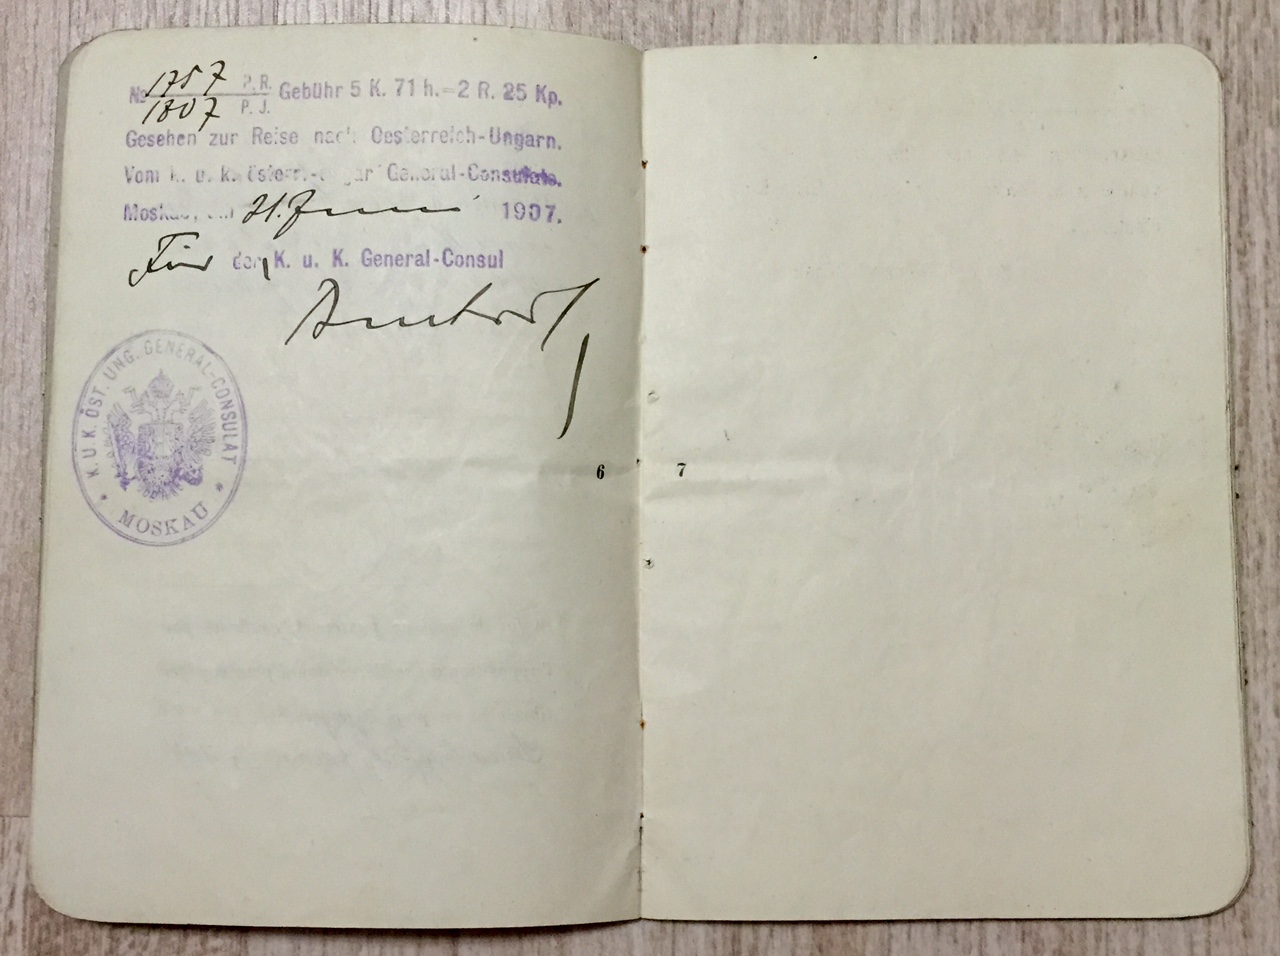 № 1757 P. R.
1807 P. J.
Gebühr 5 K. 71 h.=2 R. 25 Kp.
Gesehen zur Reise nach Oesterreich-Ungarn.
Vom k. u. k. österr.-ungar General-Consulate.
Moskau, am 21. Juni 1907.
Für den K. u. K. General-Consul
K. U. K. ÖST. UNG. GENERAL-CONSULAT
MOSKAU
6
7